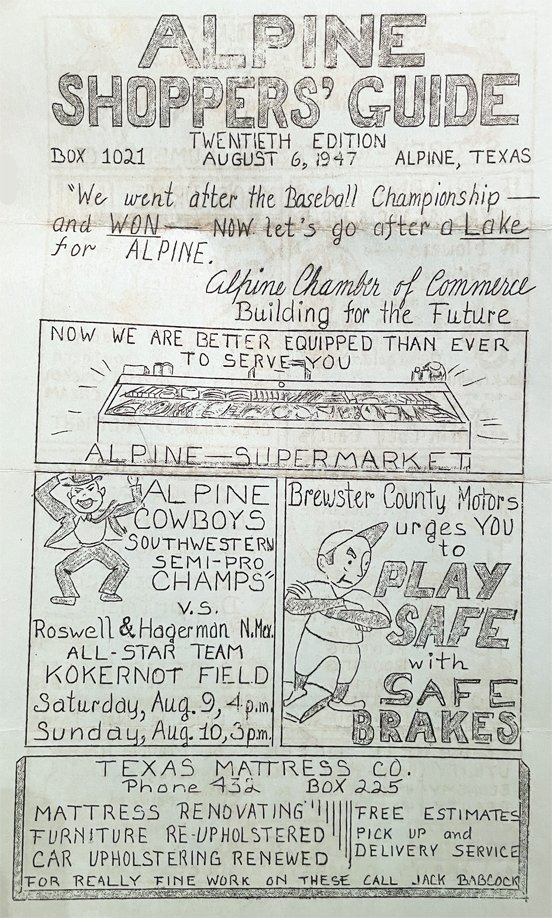 ALPINE
SHOPPERS' GUIDE
TWENTIETH EDITION
BOX 1021 AUGUST 6, 1947 ALPINE, TEXAS
"We went after the Baseball Championship —
and WON — NOW let's go after a Lake
for ALPINE.
Alpine Chamber of Commerce
Building for the Future
NOW WE ARE BETTER EQUIPPED THAN EVER
TO SERVE YOU
ALPINE SUPERMARKET
ALPINE
COWBOYS
SOUTHWESTERN
SEMI-PRO
CHAMPS"
V.S.
Roswell & Hagerman N.Mex.
ALL-STAR TEAM
KOKERNOT FIELD
Saturday, Aug. 9, 4 p.m.
Sunday, Aug. 10, 3 p.m.
Brewster County Motors
urges YOU
to
PLAY
SAFE
with
SAFE
BRAKES
TEXAS MATTRESS CO.
Phone 432 BOX 225
MATTRESS RENOVATING
FURNITURE RE-UPHOLSTERED
CAR UPHOLSTERING RENEWED
FREE ESTIMATES
PICK UP and
DELIVERY SERVICE
FOR REALLY FINE WORK ON THESE CALL JACK BABCOCK